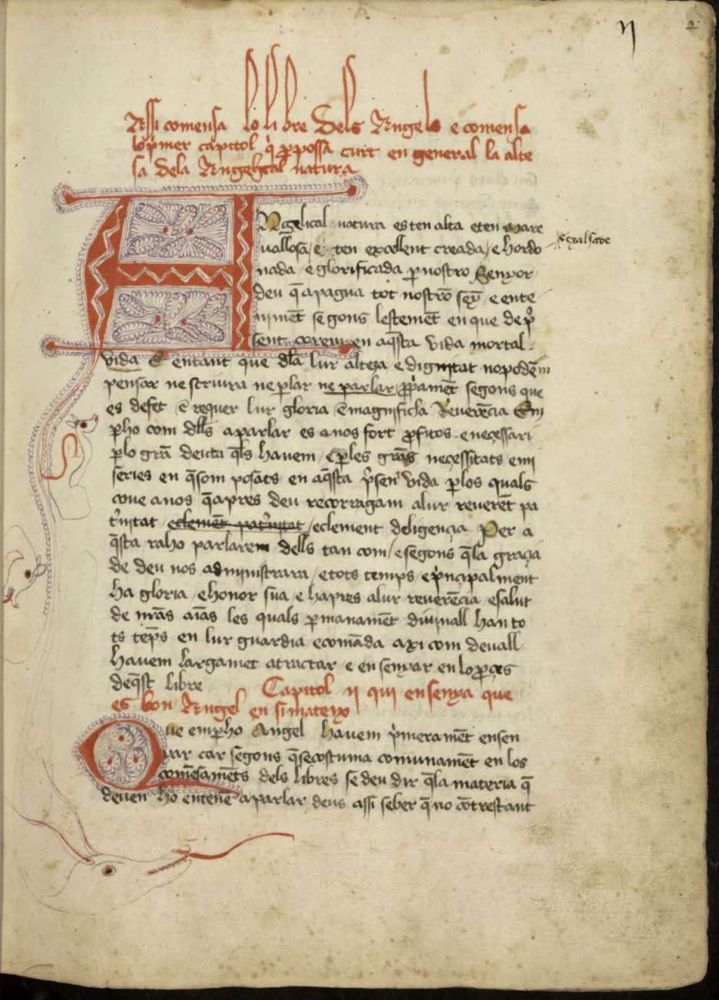 ıȷ 2
Assi comensa lo libre dels Angels e comensa
lo pͥmer capitol q̄ ꝑposa curt en general la alte
sa dela Angelical natura
ANgelical natura es ten alta e ten mare
vallosa / e ten excellent creada / e hordo
nada / e glorificada ꝑ nostro Senyor
deu q̄ apagua tot nostro sey / e ente
niment segons lestament en que de pͥ
sent corem en aq̄sta vida mortal.
vida E entant que dla lur alteza e dignitat no podem
pensar ne scriura ne ꝑlar ne parlar ꝓpͥament segons que
es defet e requer lur gloria e magnificha Reuerēcia Em
ꝑho com dlls a parlar es a nos fort ꝓfitos e necessari
ꝑlo grā deute q̄ls hauem / e ꝑ les grās necessitats e mi
series en q̄ som posats en aq̄sta pͥsent vida ꝑ los quals
coue a nos q̄ apres deu recorragam a lur reuerēt pa
tͥnitat eclement patͥnitat / eclement deligencia Per a
q̄sta raho parlarem dells tan com / e segons q̄ la gracia
de deu nos administrara / e tots temps e pͥncipalment
ha gloria / e honor sua / e hapres a lur reuerēcia e salut
de nr̄as aīas les quals ꝑ manament diuinall han to
ts tēps en lur guardia e comāda axi com deuall
hauem largamēt a tractar e ensenyar en lo ꝓces
deq̄st libre Capitol ıȷ qui ensenya que
es bon Angel en si mateyx
Que em ꝑho Angel hauem pͥmeramēt ensen
yar car segons q̄ se costuma comunamēt en los
comēsamēts dels libres se deu dir q̄ la materia q̄
deuen ho entenē a parlar deus assi seber q̄ no cōtrestant